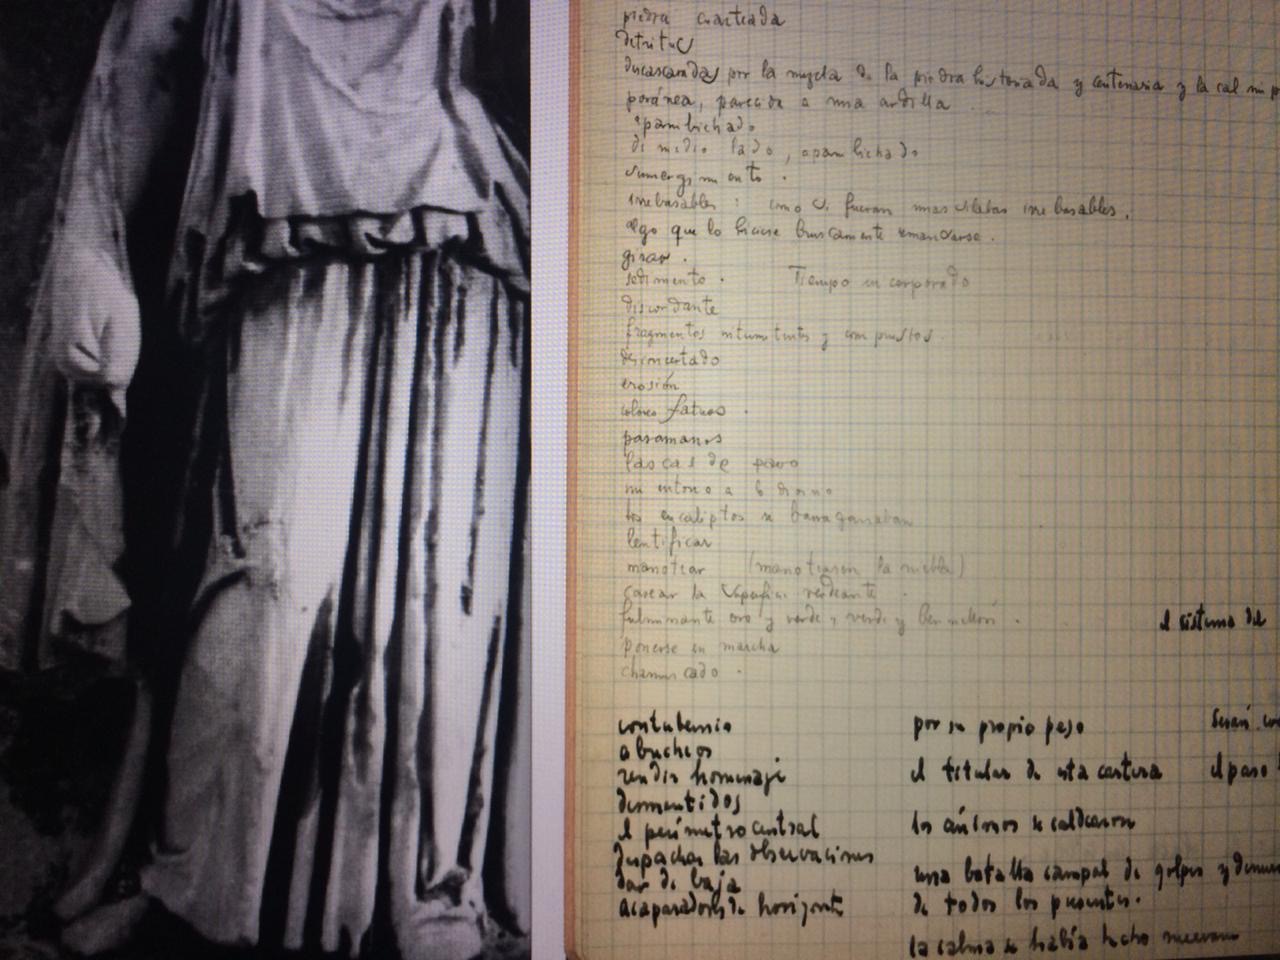 piedra cuarteada
detritus
descascaradas por la mezcla de la piedra historiada y centenaria y la cal
poránea, parecida a una ardilla
apambichado
de medio lado, apambichado
sumergimiento.
irrebasables: como si fueran unas sílabas irrebasables.
algo que lo hiciese bruscamente
girar.
sedimento. Tiempo incorporado
discordante
fragmentos intermitentes y compuestos.
desconcertado
erosión
colores fatuos.
pasamanos
lascas de pavo
mi entorno
los eucaliptos se
lentificar
manotear (manotearon la niebla)
la superficie verdeante.
fulminante oro y verde, verde y bermellón.
el sistema del
ponerse en marcha
chamuscado.
contubernio
abucheos
rendir homenaje
desmentidos
el perímetro central
despachar las observaciones
dar de baja
acaparadores de horizonte
por su propio peso
el titular de esta cartera
los ánimos se caldearon
una batalla campal de golpes y
de todos los presentes.
la calma se había hecho
Serán
el paso